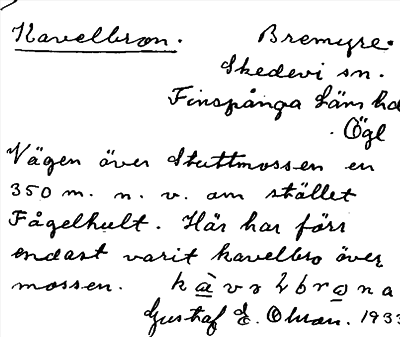 Kavelbron. Bremyre.
Skedevi sn.
Finspånga läns hd
Ögl
Vägen över Stuttmossen en
350 m. n. v. om stället
Fågelhult. Här har förr
endast varit kavelbro över
mossen. k à v ə l b r o n a
Gustaf E. Olson. 1933